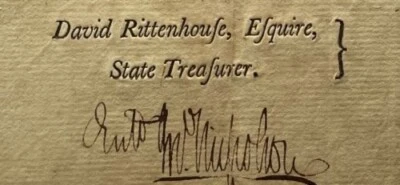 David Rittenhouſe, Eſquire, }
State Treaſurer.
Nicholson